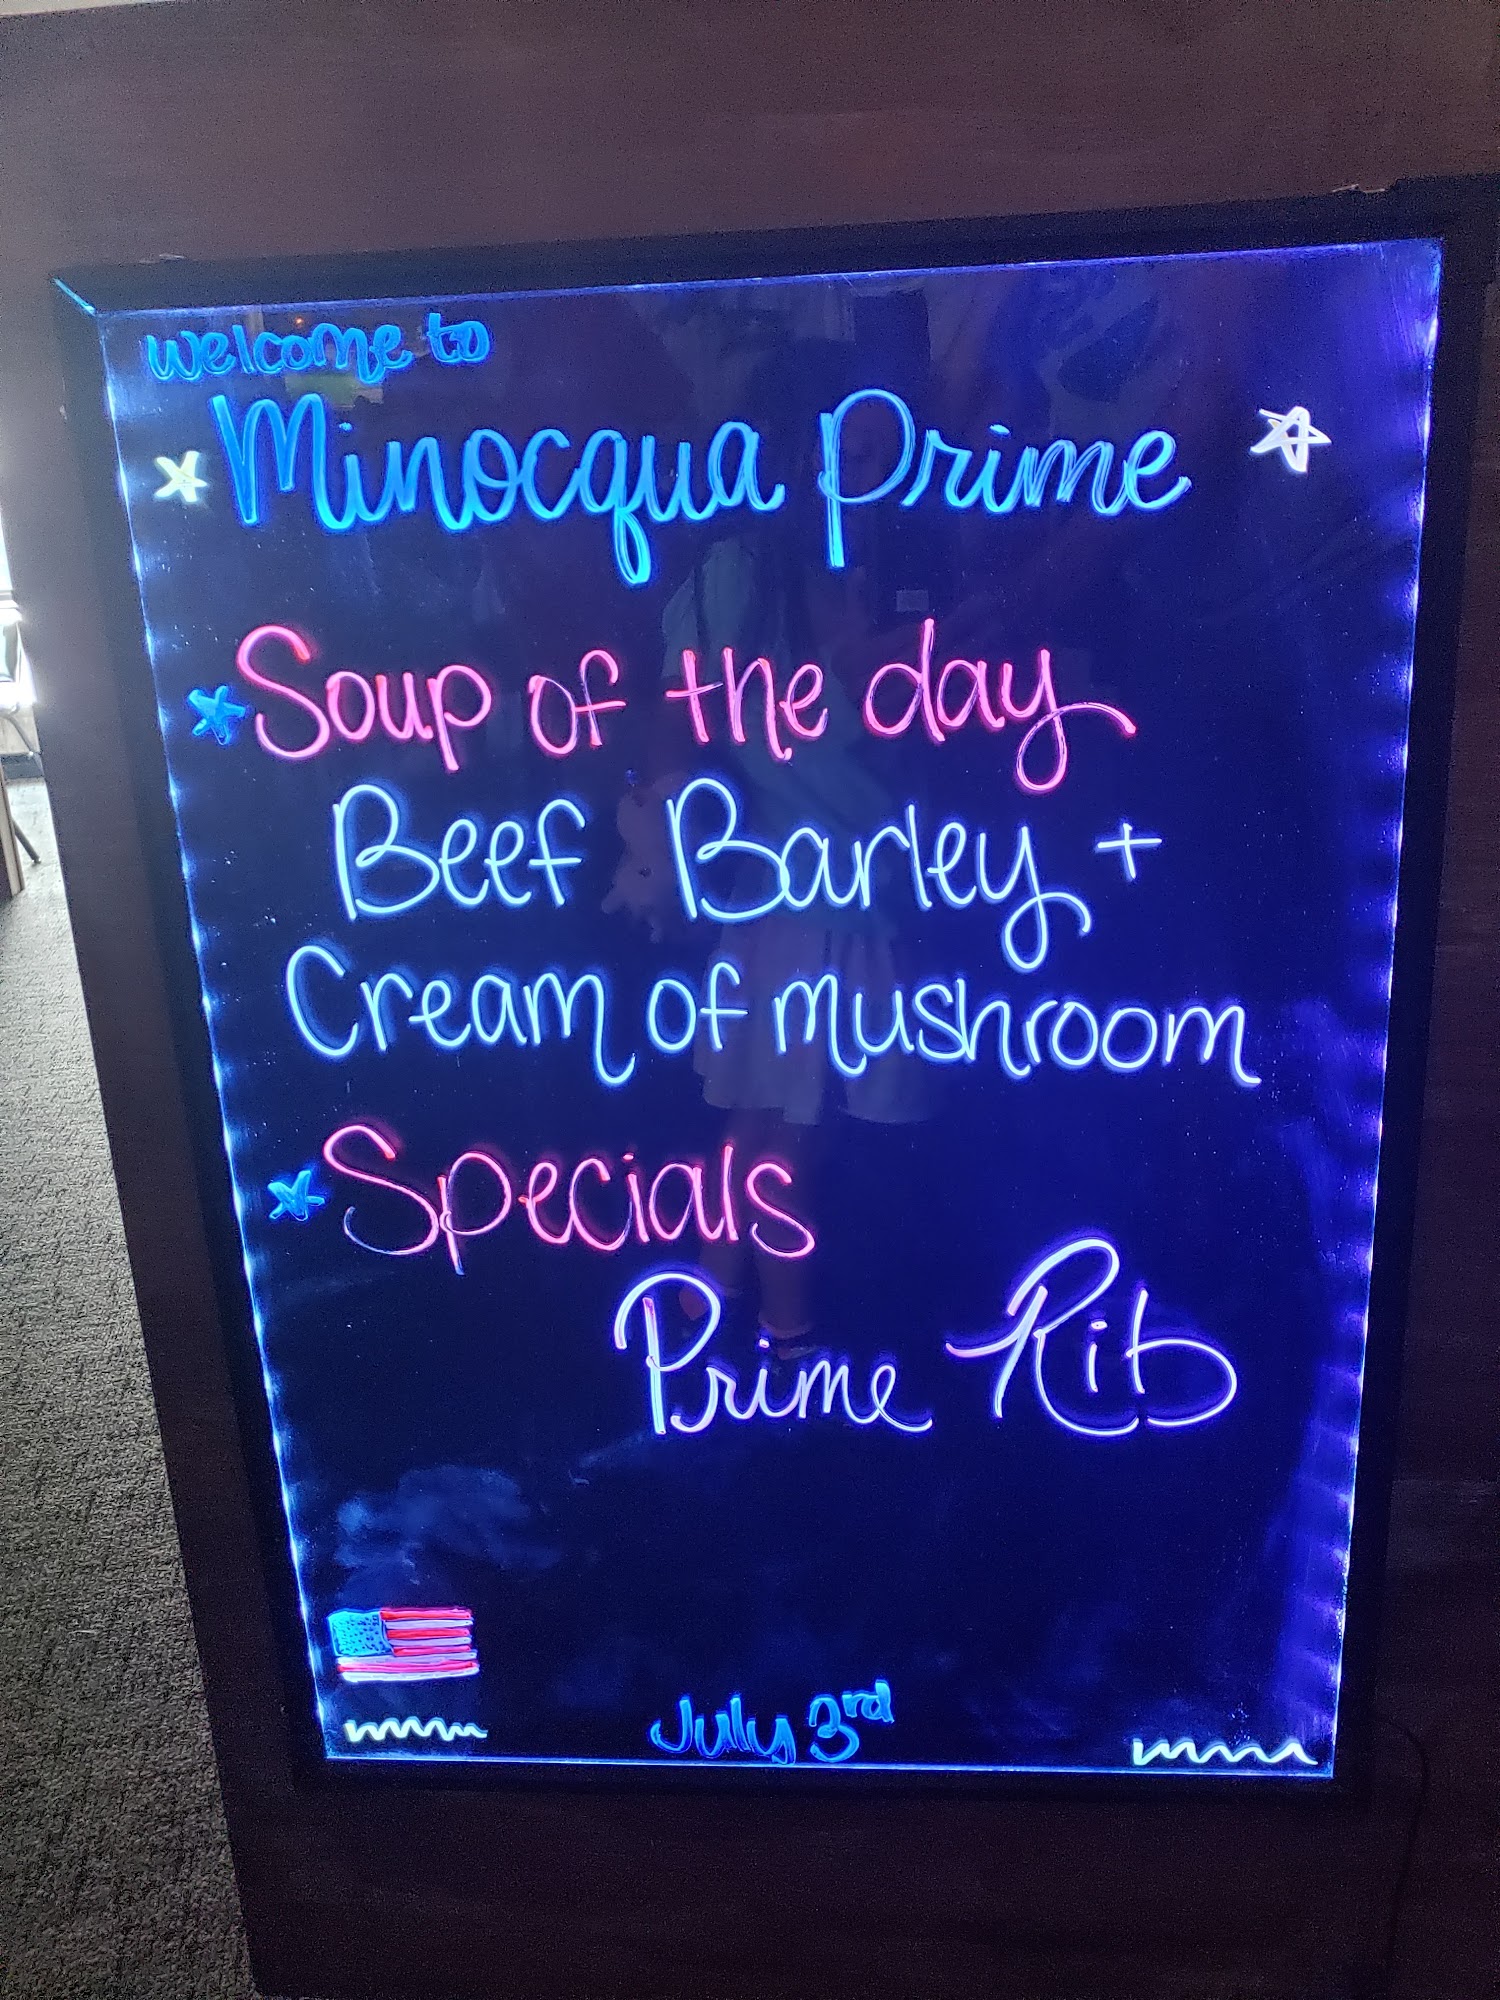 welcome to
Minocqua Prime
Soup of the day
Beef Barley +
Cream of mushroom
Specials
Prime Rib
July 3rd